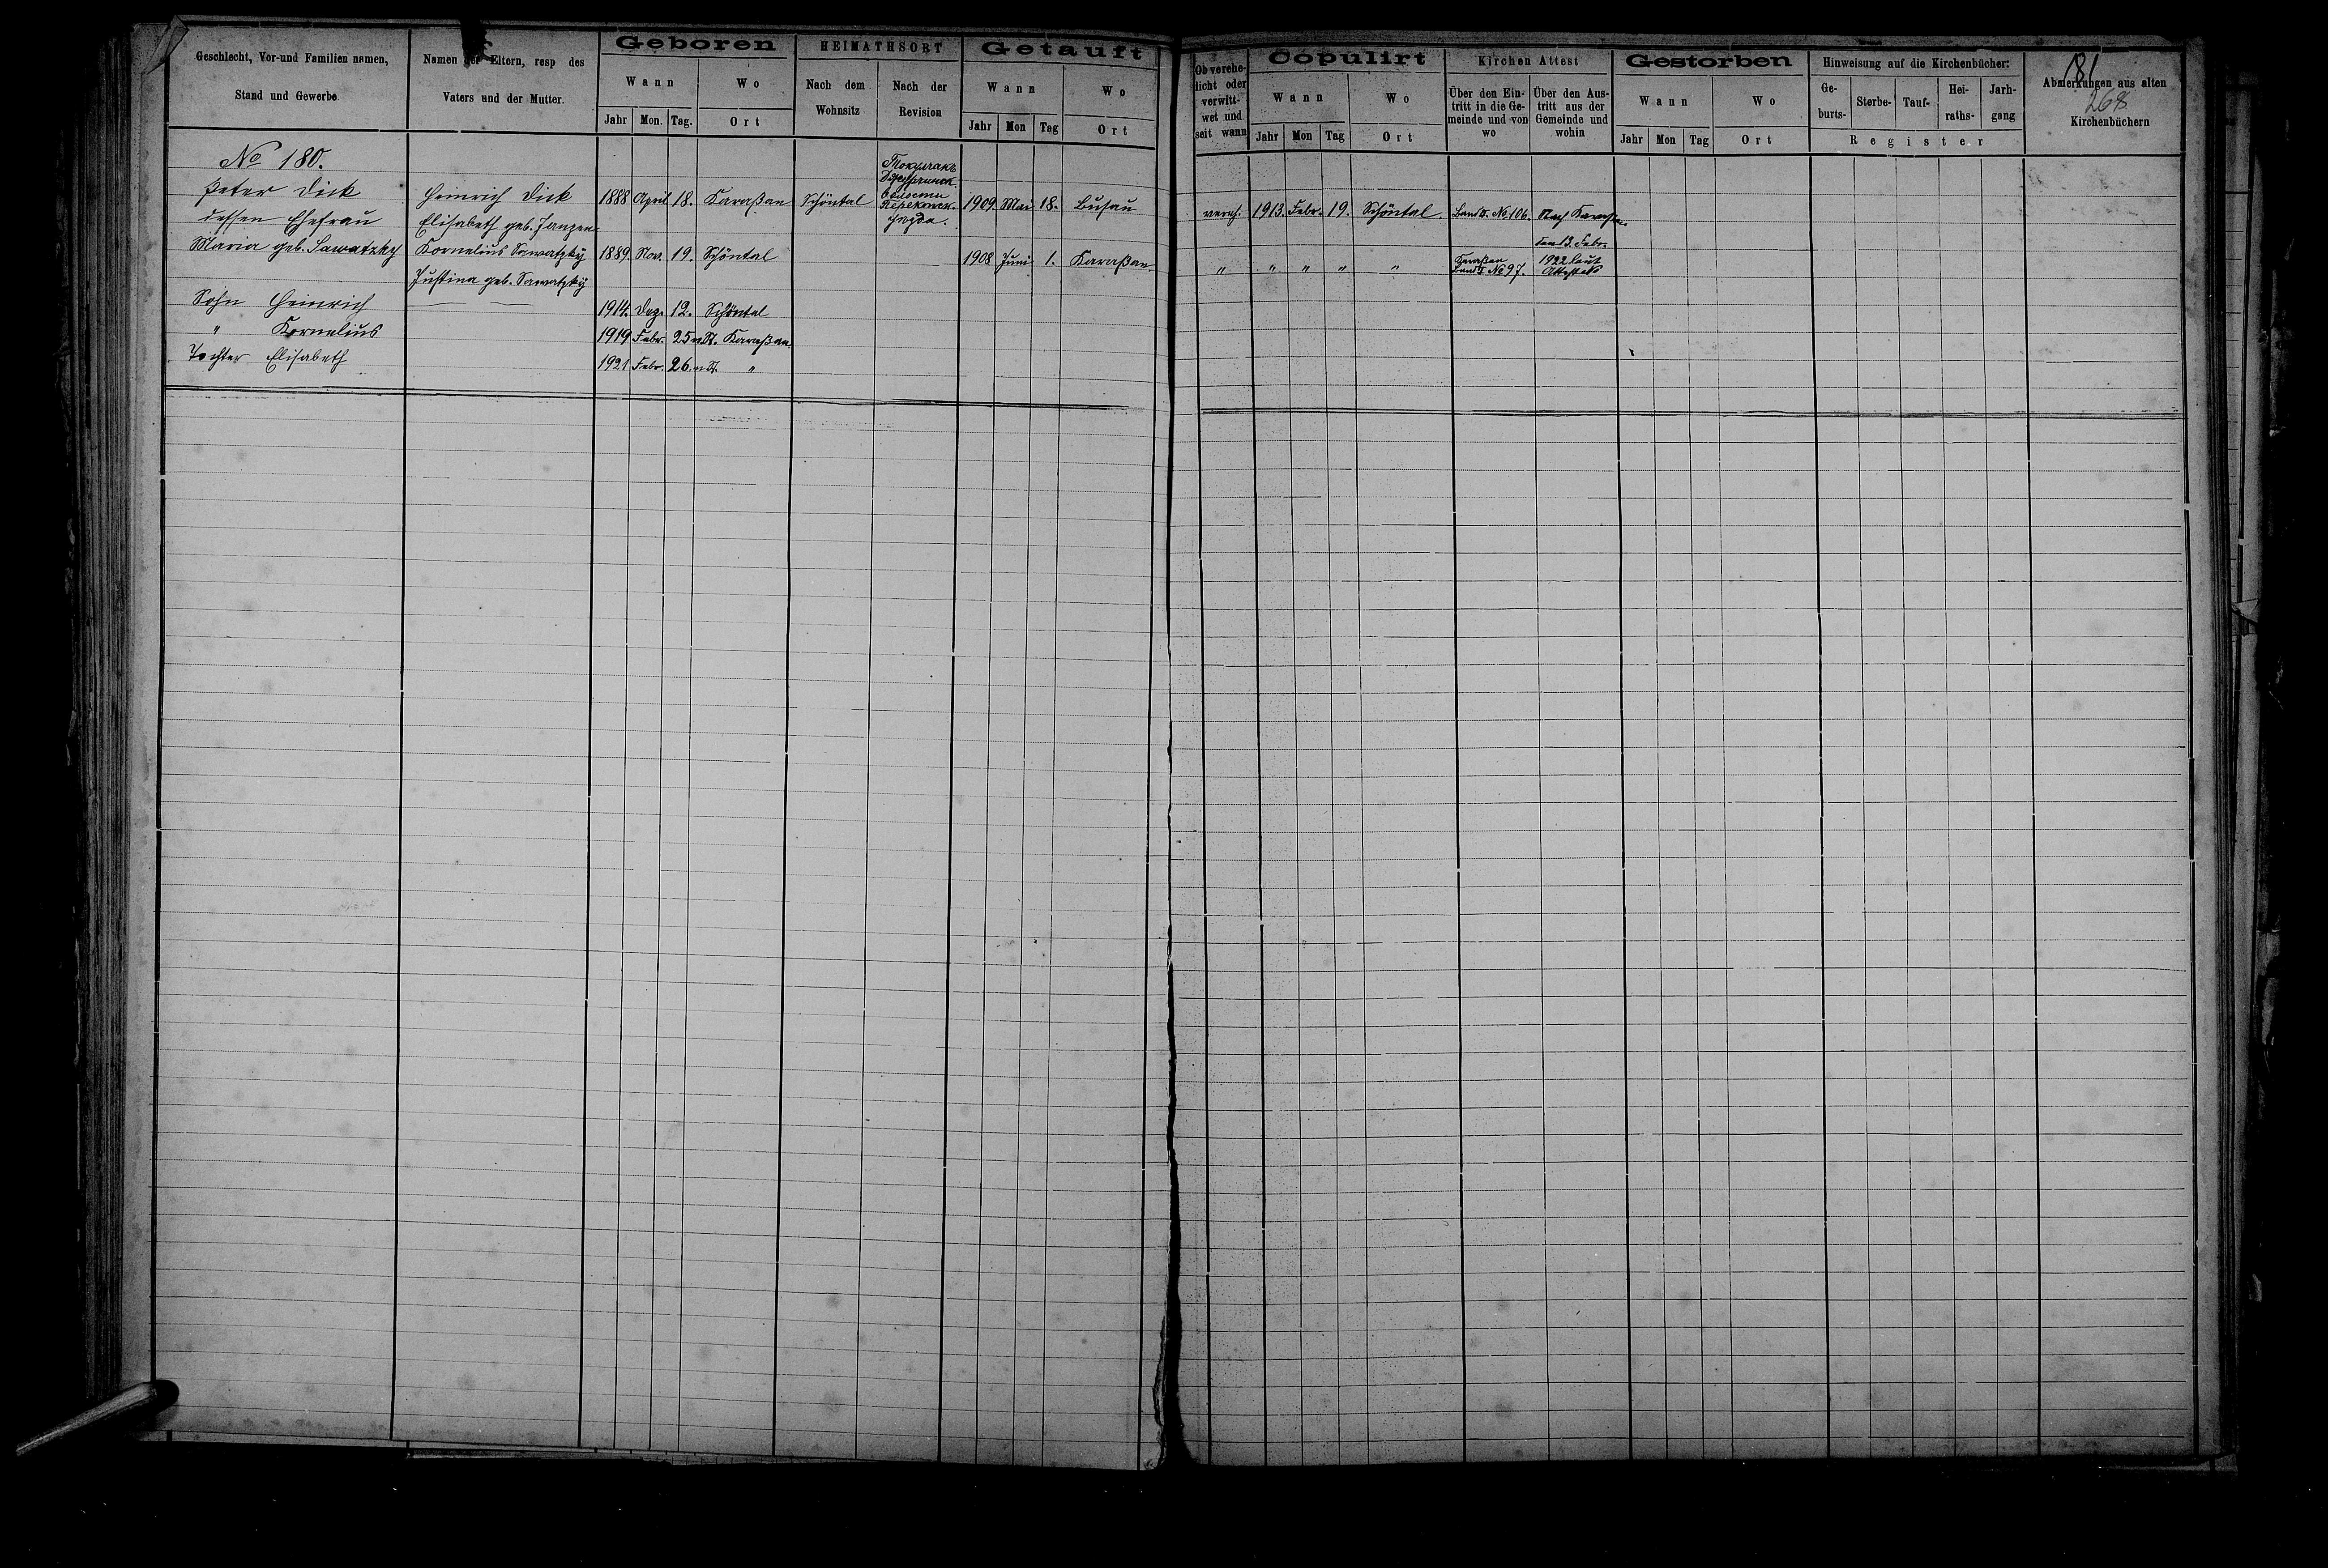 Geschlecht, Vor-und Familien namen,
Stand und Gewerbe
Namen der Eltern, resp des
Vaters und der Mutter.
Geboren
Wann
Wo
Jahr Mon. Tag. Ort
HEIMATHSORT
Nach dem Wohnsitz
Nach der Revision
Getauft
Wann
Wo
Jahr Mon Tag Ort
Ob verehe-
licht oder
verwitt-
wet und
seit wann
Copulirt
Wann
Wo
Jahr Mon Tag Ort
Kirchen Attest
Über den Ein-
tritt in die Ge-
meinde und von
wo
Über den Aus-
tritt aus der
Gemeinde und
wohin
Gestorben
Wann
Wo
Jahr Mon Tag Ort
Hinweisung auf die Kirchenbücher:
Ge-
burts-
Sterbe-
Tauf-
Hei-
raths-
Jarh-
gang
Register
181
Abmerkungen aus alten
268
Kirchenbüchern
No 180.
Peter Dick Heinrich Dick 1888 April 18. Karaßan Schöntal 1909. Mai 18. Busau vereh. 1913. Febr. 19. Schöntal. Band II. No 106. Nach Karaßan
dessen Ehefrau Elisabeth geb. Janzen
den 13. Febr.
Maria geb. Sawatzky Kornelius Sawatzky 1889. Nov. 19. Schöntal 1908 Juni 1. Karaßan. " " " " " Karaßan 1922 laut
Justina geb. Sawatzky No 97. Attestats
Sohn Heinrich 1914. Dez. 12. Schöntal
" Kornelius 1919 Febr. 25 n. St. Karaßan.
Tochter Elisabeth 1921 Febr. 26. n. St. "